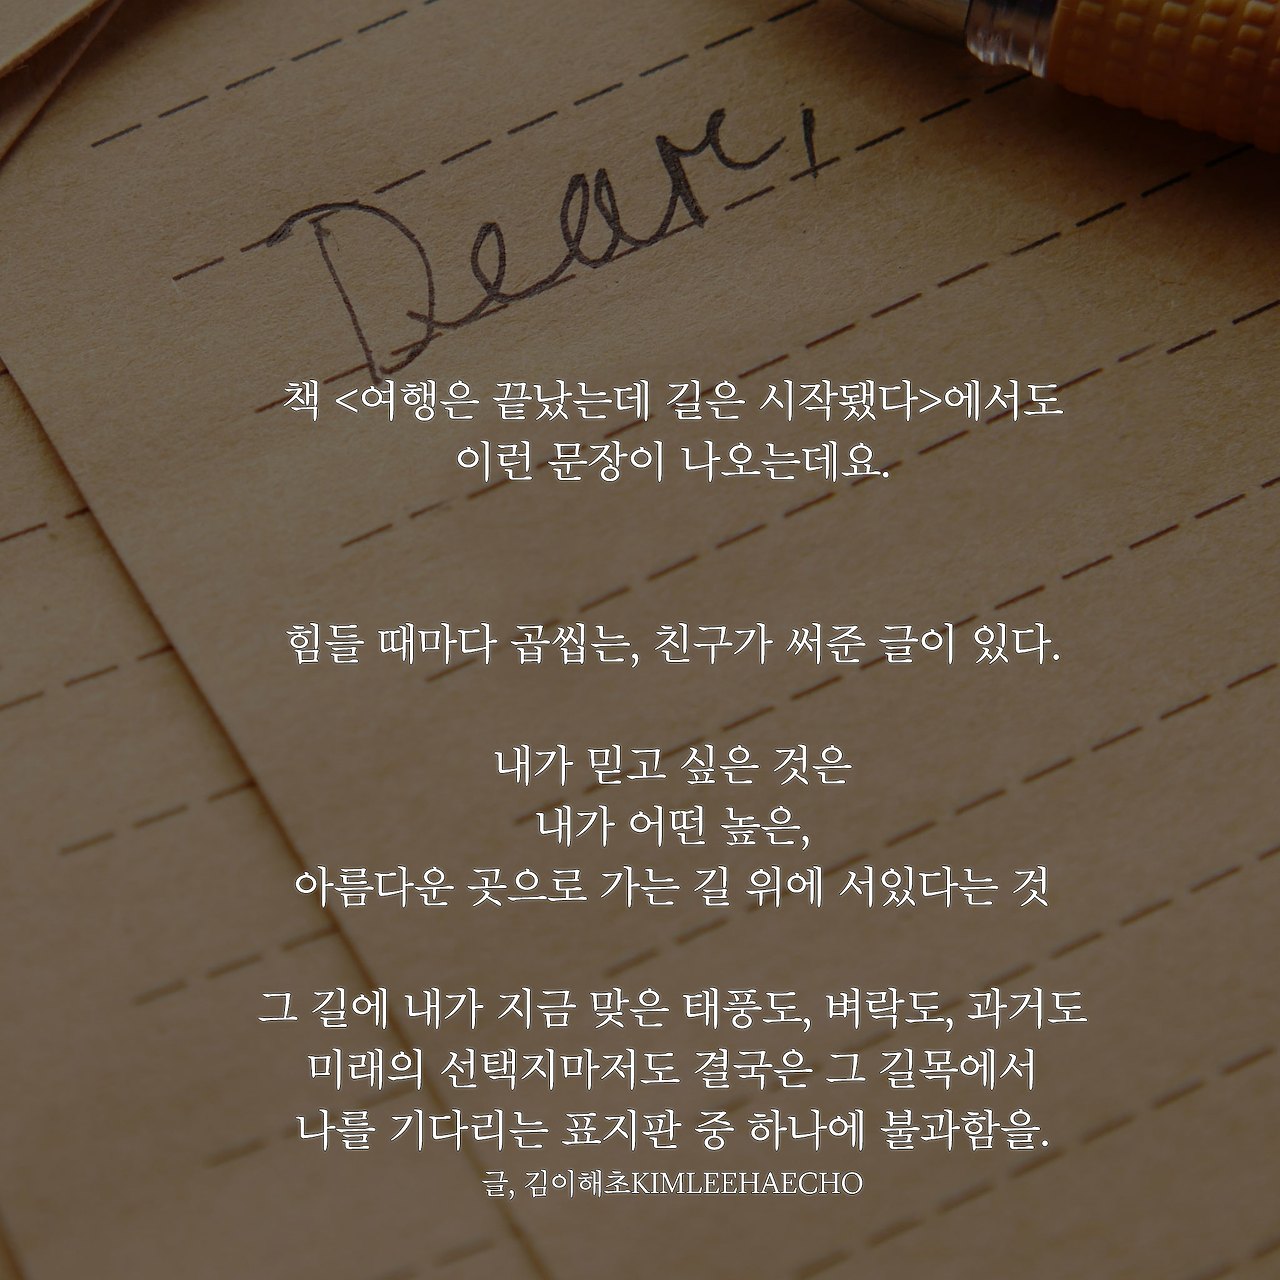 Dear,
책 <여행은 끝났는데 길은 시작됐다>에서도
이런 문장이 나오는데요.
힘들 때마다 곱씹는, 친구가 써준 글이 있다.
내가 믿고 싶은 것은
내가 어떤 높은,
아름다운 곳으로 가는 길 위에 서있다는 것
그 길에 내가 지금 맞은 태풍도, 벼락도, 과거도
미래의 선택지마저도 결국은 그 길목에서
나를 기다리는 표지판 중 하나에 불과함을.
글, 김이해초KIMLEEHAECHO